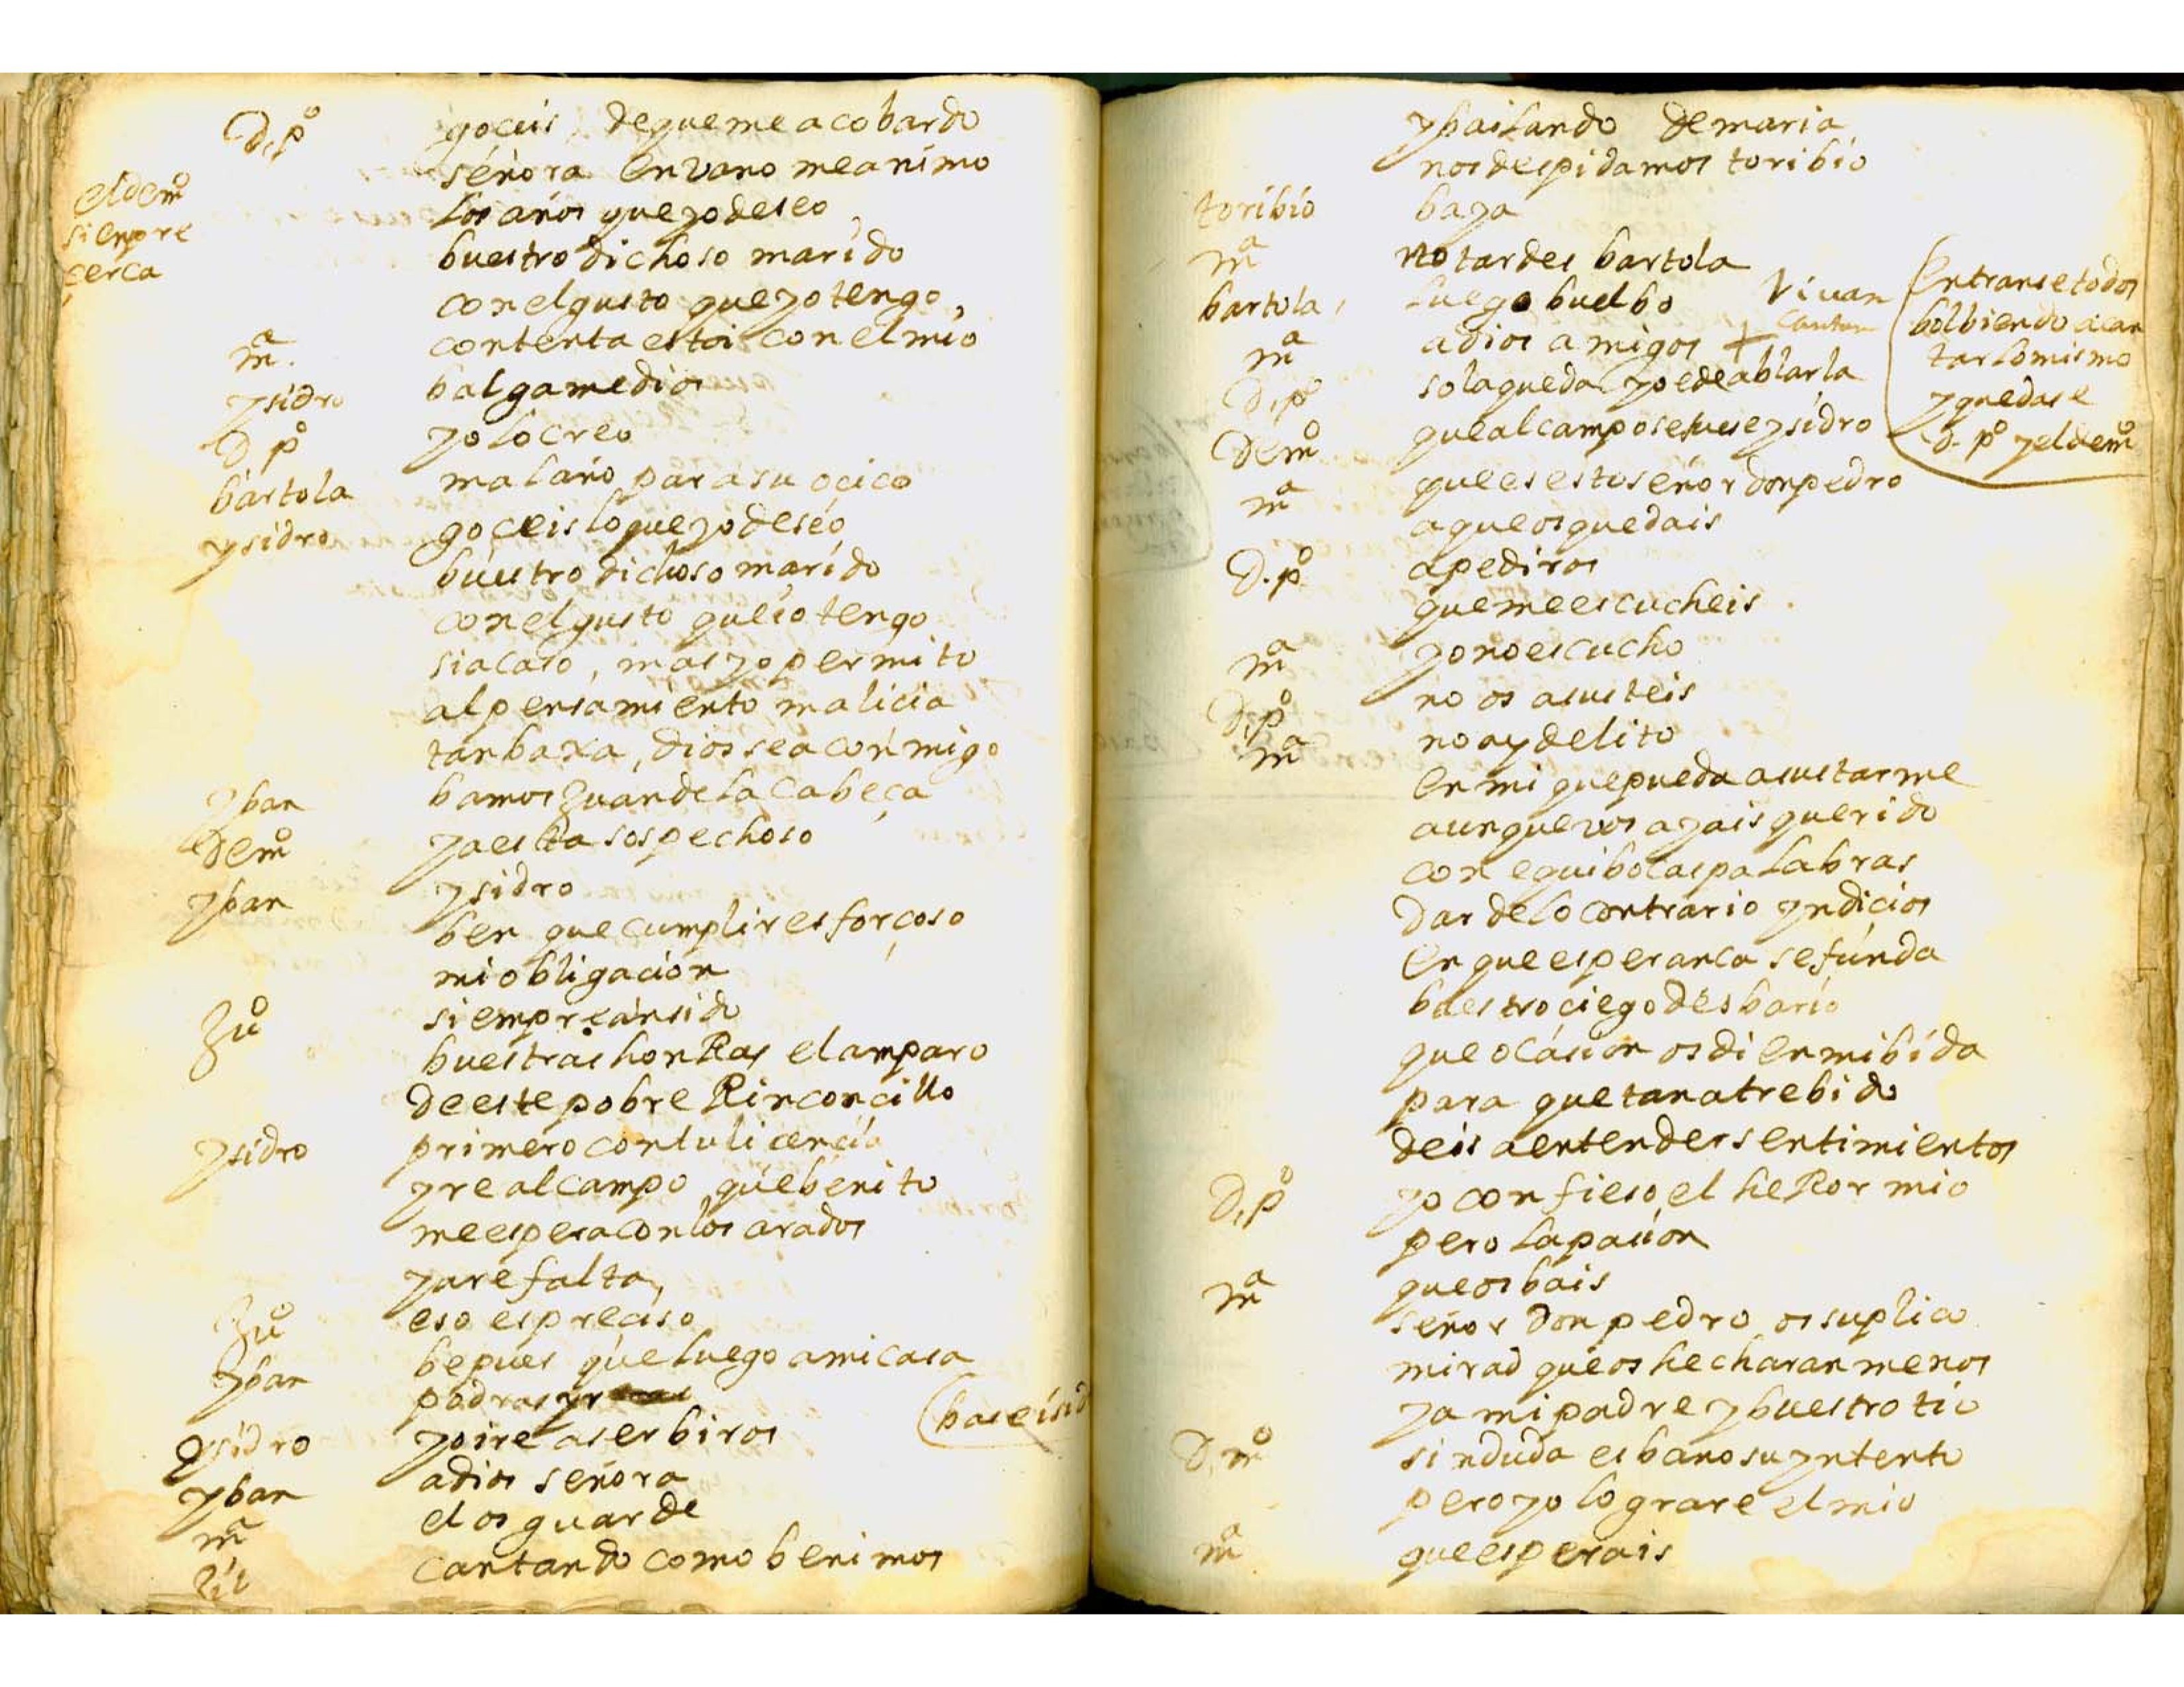 D, pº goceis de que me acobardo
señora en vano me animo
el demº
sienpre
cerca
los años que yo deseo
buestro dichoso marido
con el gusto que yo tengo,
mª. contenta estoi con el mio
ysidro balgame dios
D pº yo lo creo
bartola mal año para su ocico
ysidro goceis lo que yo deseo
buestro dichoso marido
con el gusto que io tengo
si acaso, mas yo permito
al pensamiento malicia
tan baxa, dios sea conmigo
yban bamos Juan de la Cabeça
Demº ya esta sospechoso
yban ysidro
ben que cumplir es forçoso
mi obligacion
Juº siempre an sido
buestras honRas el amparo
de este pobre Rinconcillo
ysidro primero con tu licencia
yre al campo que benito
me espera con los arados
y are falta,
Juº eso es preciso
yban be pues que luego a mi casa
podras yr
ysidro yo ire a serbiros
(base isid
yban adios señora
mª el os guarde
cantando como benimos
y bailando de maria
nos despidamos toribio
toribio baya
mª no tardes bartola
bartola, luego buelbo
Vivan
cantan
mª adios amigos +
(Entranse todos
bolbiendo a can
tar lo mismo
y quedase
d. pº y el demº
D, pº sola queda yo e de ablarla
Demº que al campo se fuese ysidro
mª que es esto señor don pedro
a que os quedais
D. pº a pediros
que me escucheis
mª yo no escucho
D, pº no os asusteis
mª no ay delito
en mi que pueda asustarme
aunque vos ayais querido
con equibocas palabras
dar de lo contrario yndicios
en que esperanca se funda
buestro ciego desbario
que ocasion os di en mi bida
para que tan atrebido
deis a entender sentimientos
D, pº yo confieso el heRor mio
pero la pasion
mª que os bais
señor Don pedro os suplico
mirad que os hecharan menos
ya mi padre y buestro tio
D. mº sin duda es bano su yntento
pero yo lograre el mio
mª que esperais